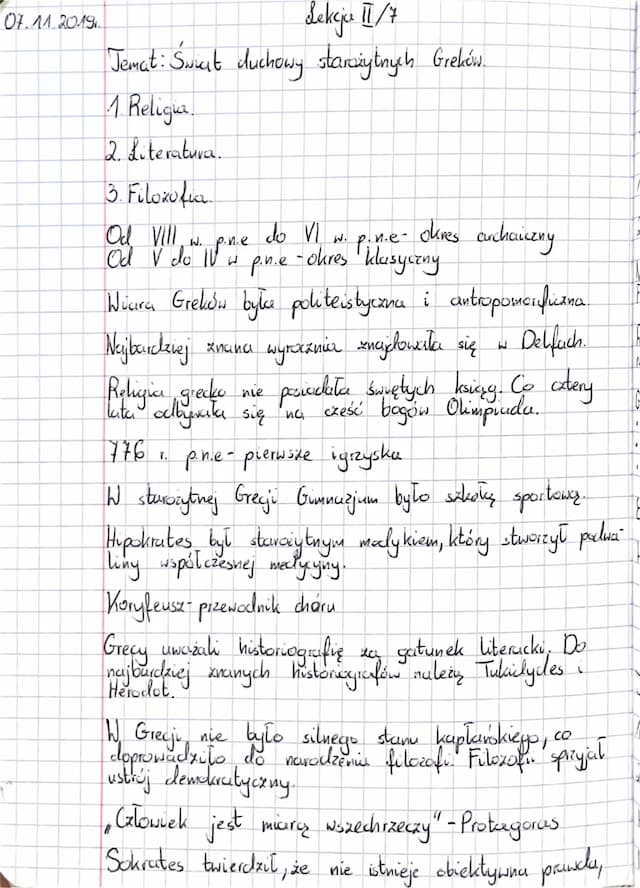 07.11.2019r. Lekcja II/7
Temat: Świat duchowy starożytnych Greków.
1. Religia.
2. Literatura.
3. Filozofia.
Od VIII w. p.n.e do VI w. p.n.e - okres archaiczny
Od V do IV w p.n.e - okres klasyczny
Wiara Greków była politeistyczna i antropomorficzna.
Najbardziej znana wyrocznia znajdowała się w Delfach.
Religia grecka nie posiadała świętych ksiąg. Co cztery
lata odbywała się na cześć bogów Olimpiada.
776 r. p.n.e - pierwsze igrzyska
W starożytnej Grecji Gumnazjum było szkołą sportową.
Hipokrates był starożytnym medykiem, który stworzył podwa-
liny współczesnej medycyny.
Koryfeusz - przewodnik chóru
Grecy uważali historiografię za gatunek literacki. Do
najbardziej znanych historiografów należą Tukidydes i
Herodot.
W Grecji nie było silnego stanu kapłańskiego, co
doprowadziło do narodzenia filozofi. Filozofii sprzyjał
ustrój demokratyczny.
„Człowiek jest miarą wszechrzeczy" - Protagoras
Sokrates twierdził, że nie istnieje obiektywna prawda,